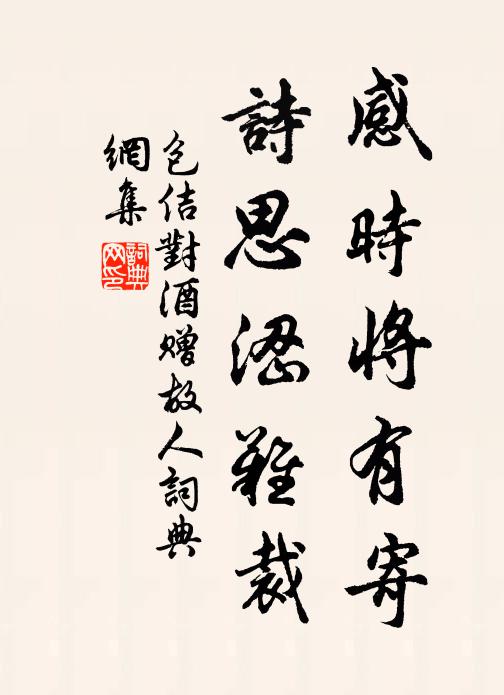 感時將有寄
詩思澀難裁
包佶對酒贈故人詞典
網集
詞典網印